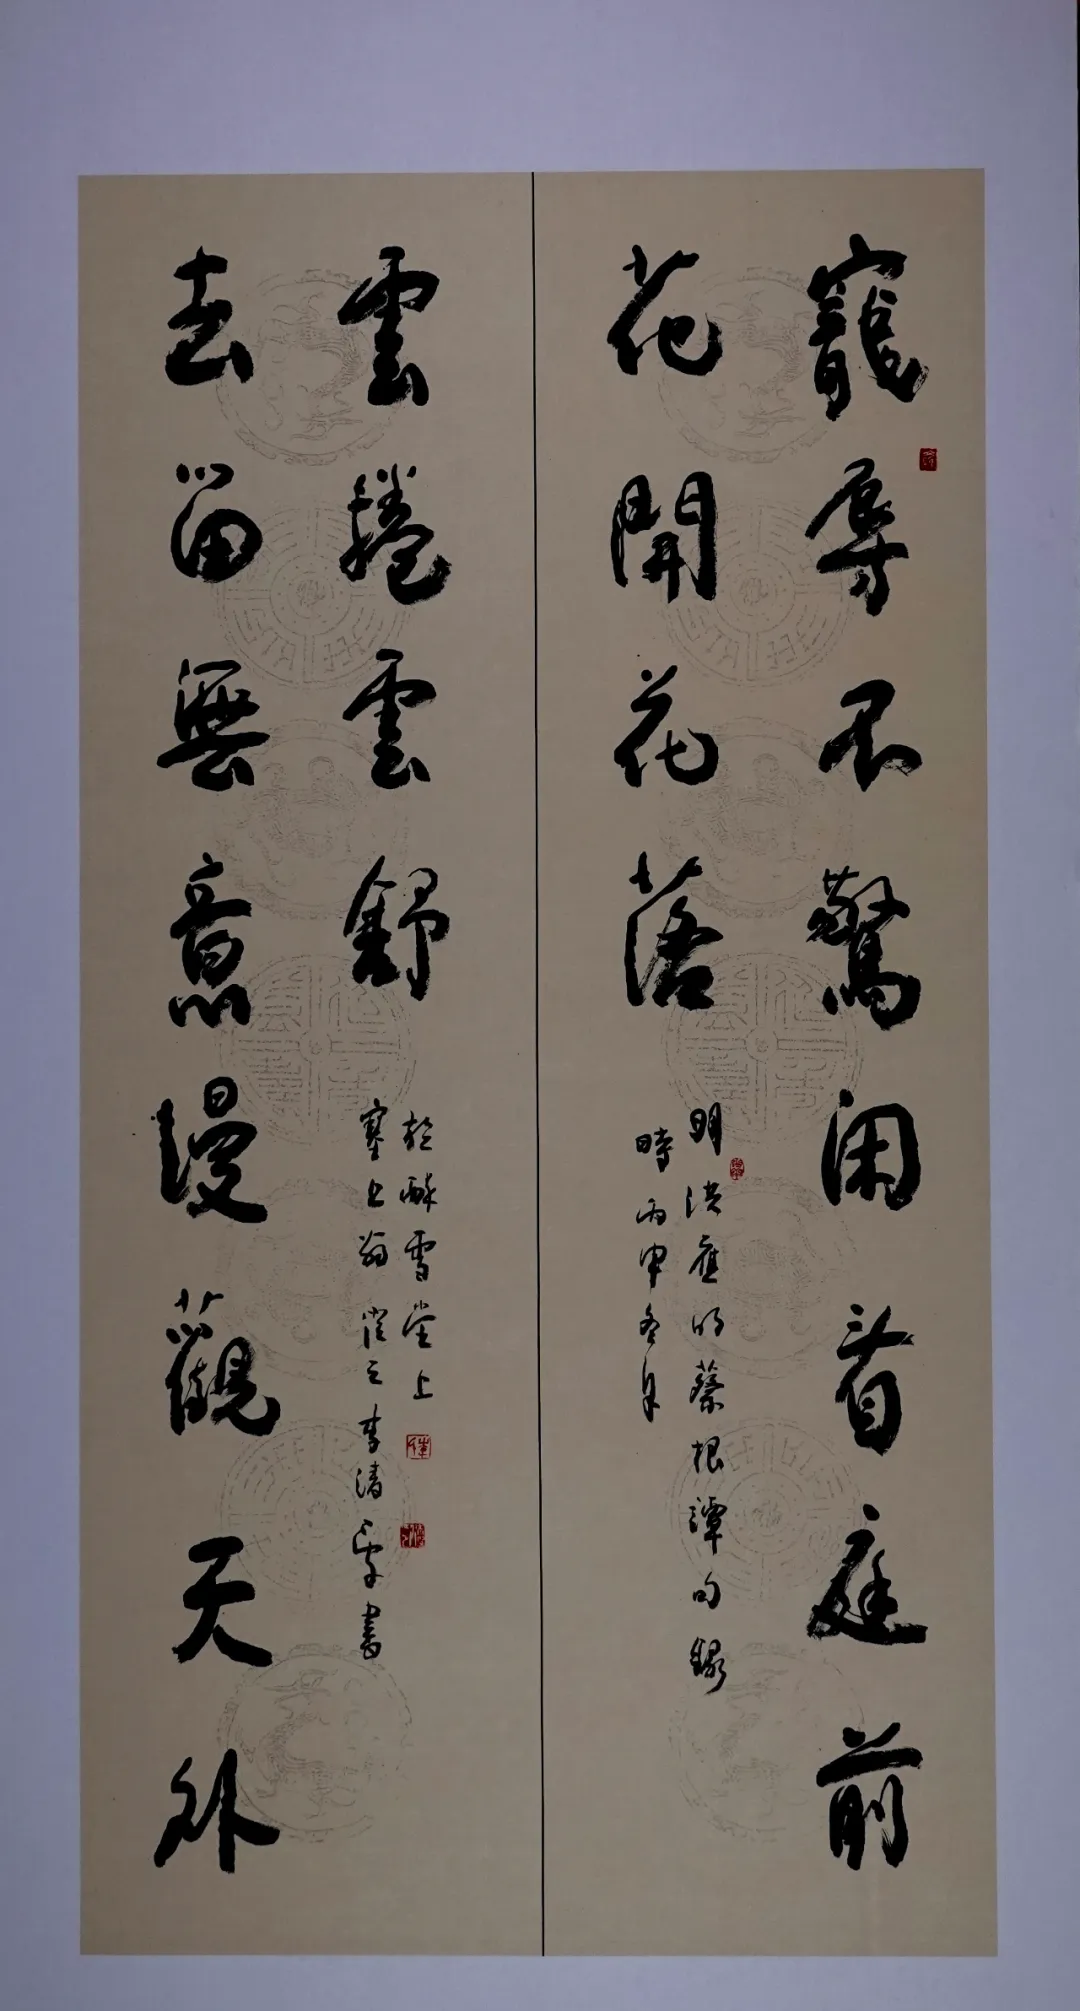 寵辱不驚闲看庭前
花開花落
明洪應明蔡根譚句錄
時丙申冬月
去留無意漫觀天外
雲捲雲舒
塞上翁 之李濤 書
於醉雪堂上